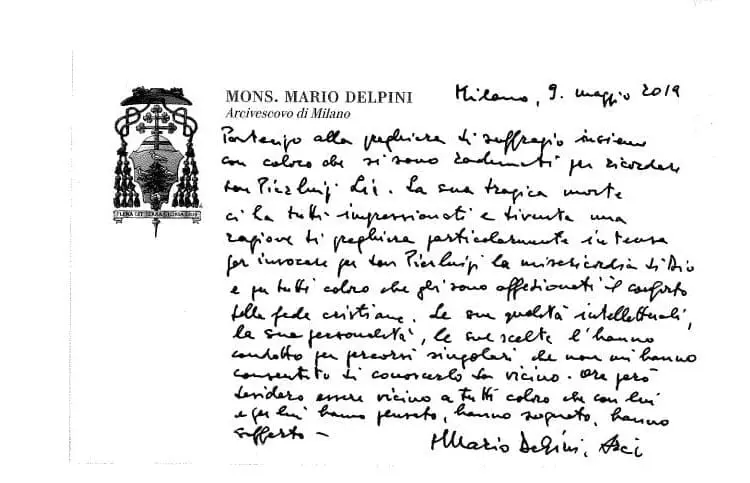 MONS. MARIO DELPINI
Arcivescovo di Milano
Milano, 9. maggio 2019
Partecipo alla preghiera di suffragio insieme
con coloro che si sono radunati per ricordare
don Pierluigi Lia. La sua tragica morte
ci ha tutti impressionati e diventa una
ragione di preghiera particolarmente intensa
per invocare per don Pierluigi la misericordia di Dio
e per tutti coloro che gli sono affezionati il conforto
della fede cristiana. Le sue qualità intellettuali,
la sua personalità, le sue scelte l'hanno
condotto per percorsi singolari che non mi hanno
consentito di conoscerlo da vicino. Ora però
desidero essere vicino a tutti coloro che con lui
e per lui hanno pensato, hanno sognato, hanno
sofferto –
+ Mario Delpini, Arci